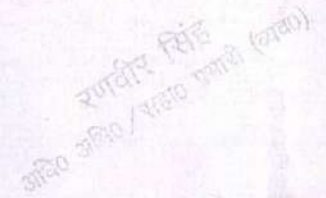 रणवीर सिंह
अधि० अभि० / सहा० प्रभारी (व्यव०)